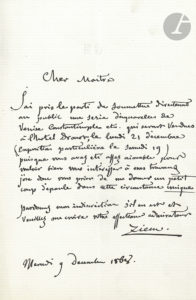 Cher Maître
J'ai pris le parti de soumettre directement
au public une série d'aquarelles de
Venise Constantinople etc. qui seront vendues
à l'hôtel Drouot le lundi 21 décembre
(exposition particulière le samedi 19)
puisque vous avez été assez aimable pour
vouloir bien vous intéresser à mes travaux
je viens vous prier de me donner un petit
coup d'épaule dans cette circonstance unique
pardonnez mon indiscrétion s'il en est et
veuillez me croire votre affectueux admirateur
Ziem
Mercredi 9 décembre 1868.